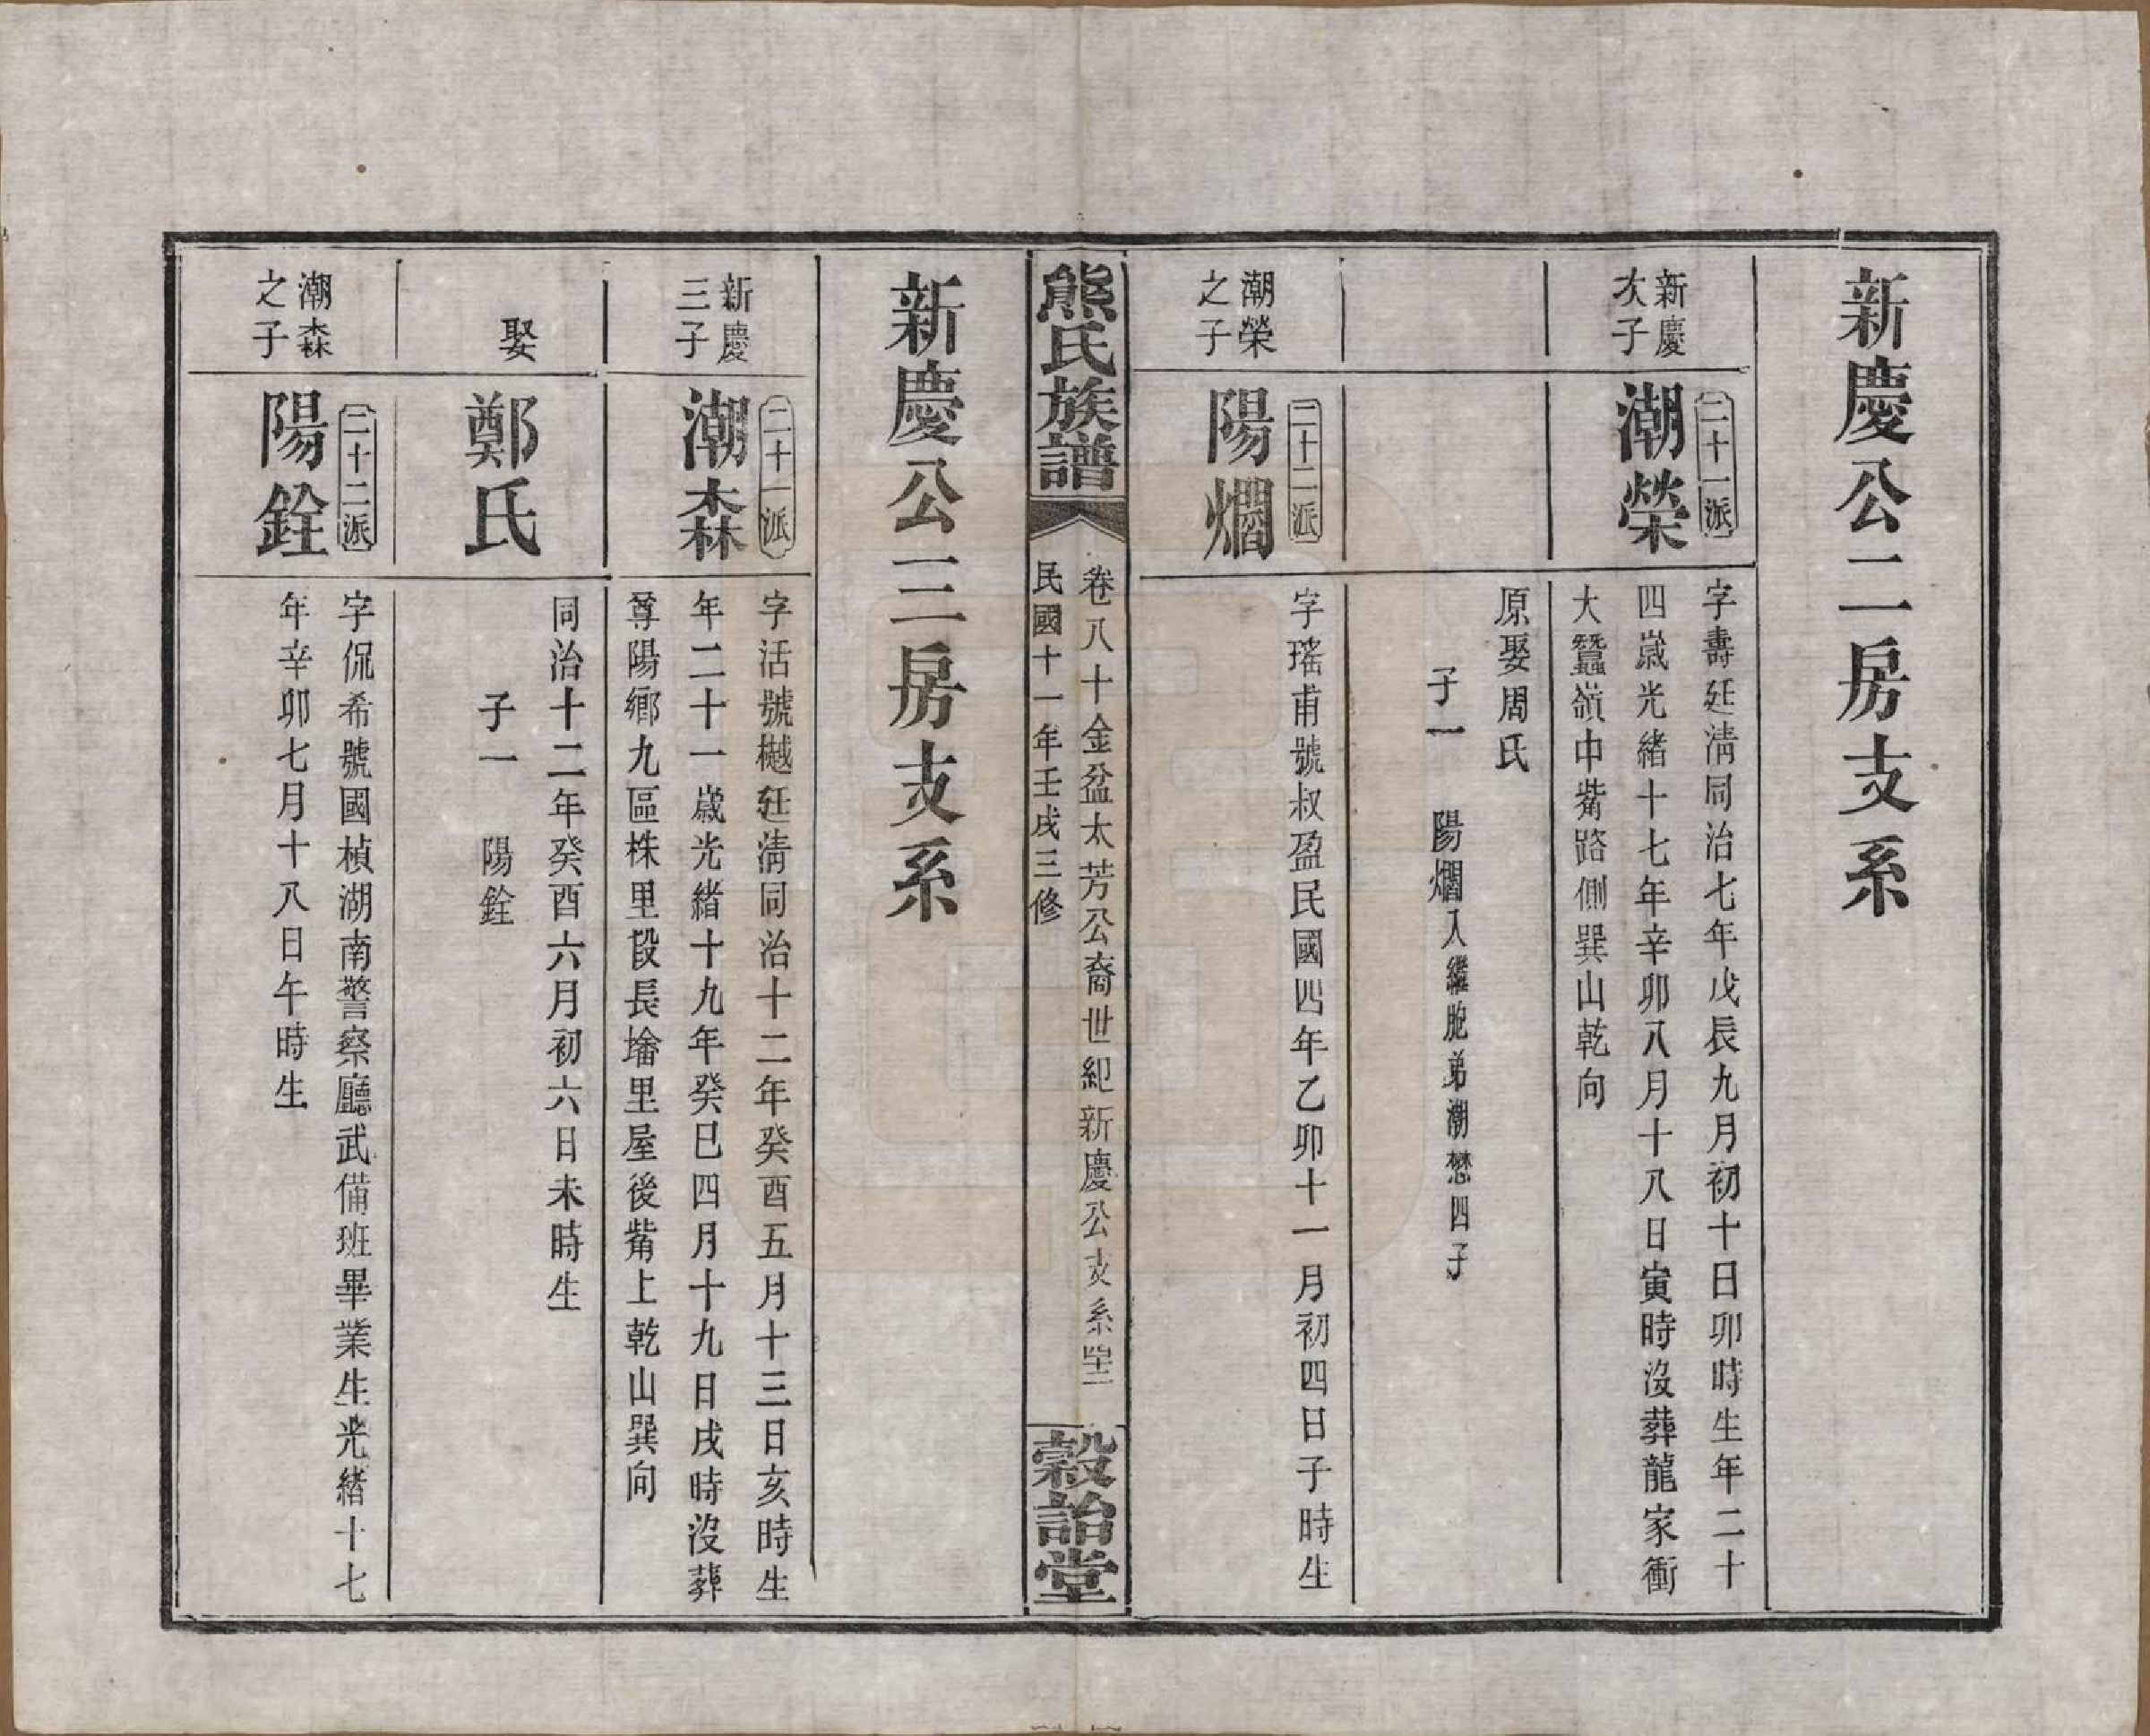 新慶公二房支系
新慶
次子
二十一派
潮榮
字壽廷清同治七年戊辰九月初十日卯時生年二十
四歲光緒十七年辛卯八月十八日寅時沒葬龍家衝
大蠶嶺中觜路側巽山乾向
原娶周氏
子一　陽爓入繼胞弟潮楙四子
潮榮
之子
二十二派
陽爓
字瑤甫號叔盈民國四年乙卯十一月初四日子時生
熊氏族譜
卷八十金盆太芳公裔世紀新慶公支系
民國十一年壬戌三修
穀詒堂
新慶公三房支系
新慶
三子
二十一派
潮森
字活號樾廷清同治十二年癸酉五月十三日亥時生
年二十一歲光緒十九年癸巳四月十九日戌時沒葬
尊陽鄉九區株里段長墦里屋後觜上乾山巽向
娶
鄭氏
同治十二年癸酉六月初六日未時生
子一　陽銓
潮森
之子
二十二派
陽銓
字侃希號國楨湖南警察廳武備班畢業生光緒十七
年辛卯七月十八日午時生